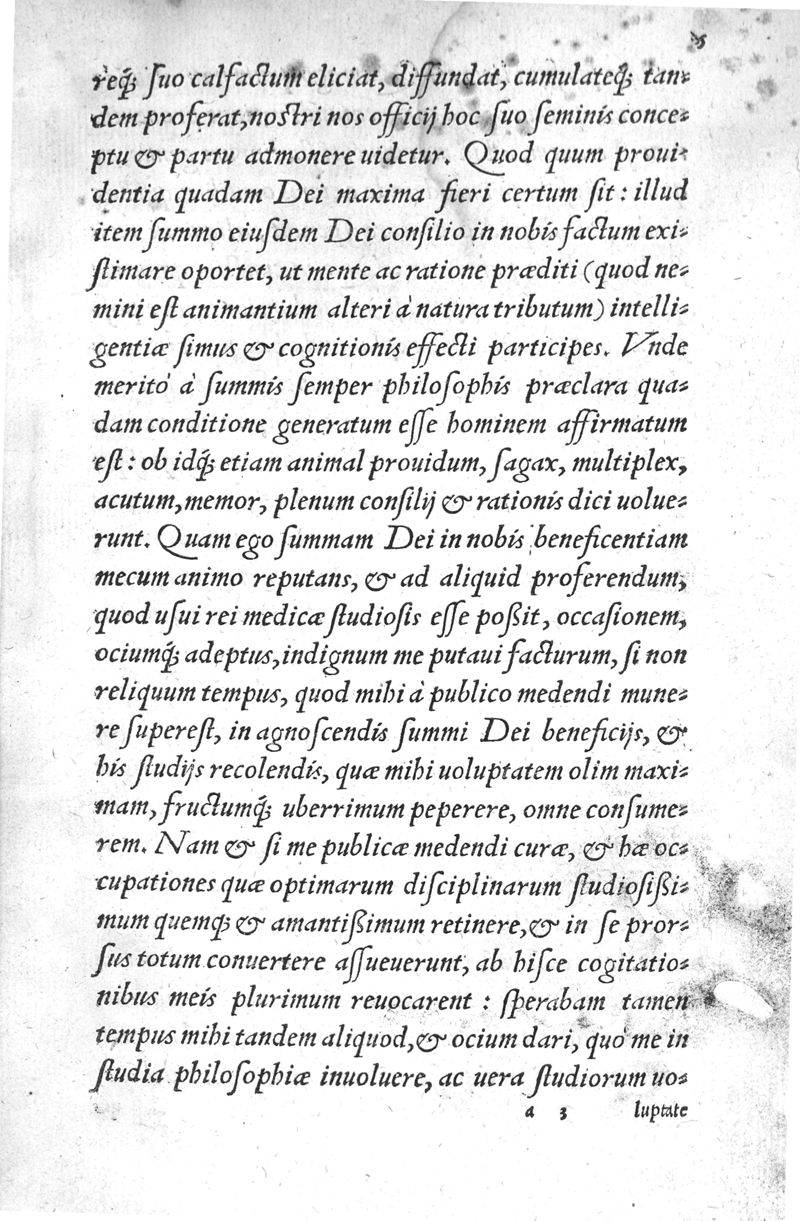 req́; ſuo calfactum eliciat, diffundat, cumulateq́; tan⸗
dem proferat, noſtri nos officij hoc ſuo ſeminis conce⸗
ptu & partu admonere uidetur. Quod quum proui⸗
dentia quadam Dei maxima fieri certum ſit: illud
item ſummo eiuſdem Dei conſilio in nobis factum exi⸗
ſtimare oportet, ut mente ac ratione præditi (quod ne⸗
mini eſt animantium alteri à natura tributum) intelli⸗
gentiæ ſimus & cognitionis effecti participes. Vnde
meritò à ſummis ſemper philoſophis præclara qua⸗
dam conditione generatum eſſe hominem affirmatum
eſt: ob idq́; etiam animal prouidum, ſagax, multiplex,
acutum, memor, plenum conſilij & rationis dici uolue⸗
runt. Quam ego ſummam Dei in nobis beneficentiam
mecum animo reputans, & ad aliquid proferendum,
quod uſui rei medicæ ſtudioſis eſſe poßit, occaſionem,
ociumq́; adeptus, indignum me putaui facturum, ſi non
reliquum tempus, quod mihi à publico medendi mune⸗
re ſupereſt, in agnoſcendis ſummi Dei beneficijs, &
his ſtudijs recolendis, quæ mihi uoluptatem olim maxi⸗
mam, fructumq́; uberrimum peperere, omne conſume⸗
rem. Nam & ſi me publicæ medendi curæ, & hæ oc⸗
cupationes quæ optimarum diſciplinarum ſtudioſißi⸗
mum quemq́; & amantißimum retinere, & in ſe pror⸗
ſus totum conuertere aſſueuerunt, ab hiſce cogitatio⸗
nibus meis plurimum reuocarent : ſperabam tamen
tempus mihi tandem aliquod, & ocium dari, quò me in
ſtudia philoſophiæ inuoluere, ac uera ſtudiorum uo⸗
a 3 luptate